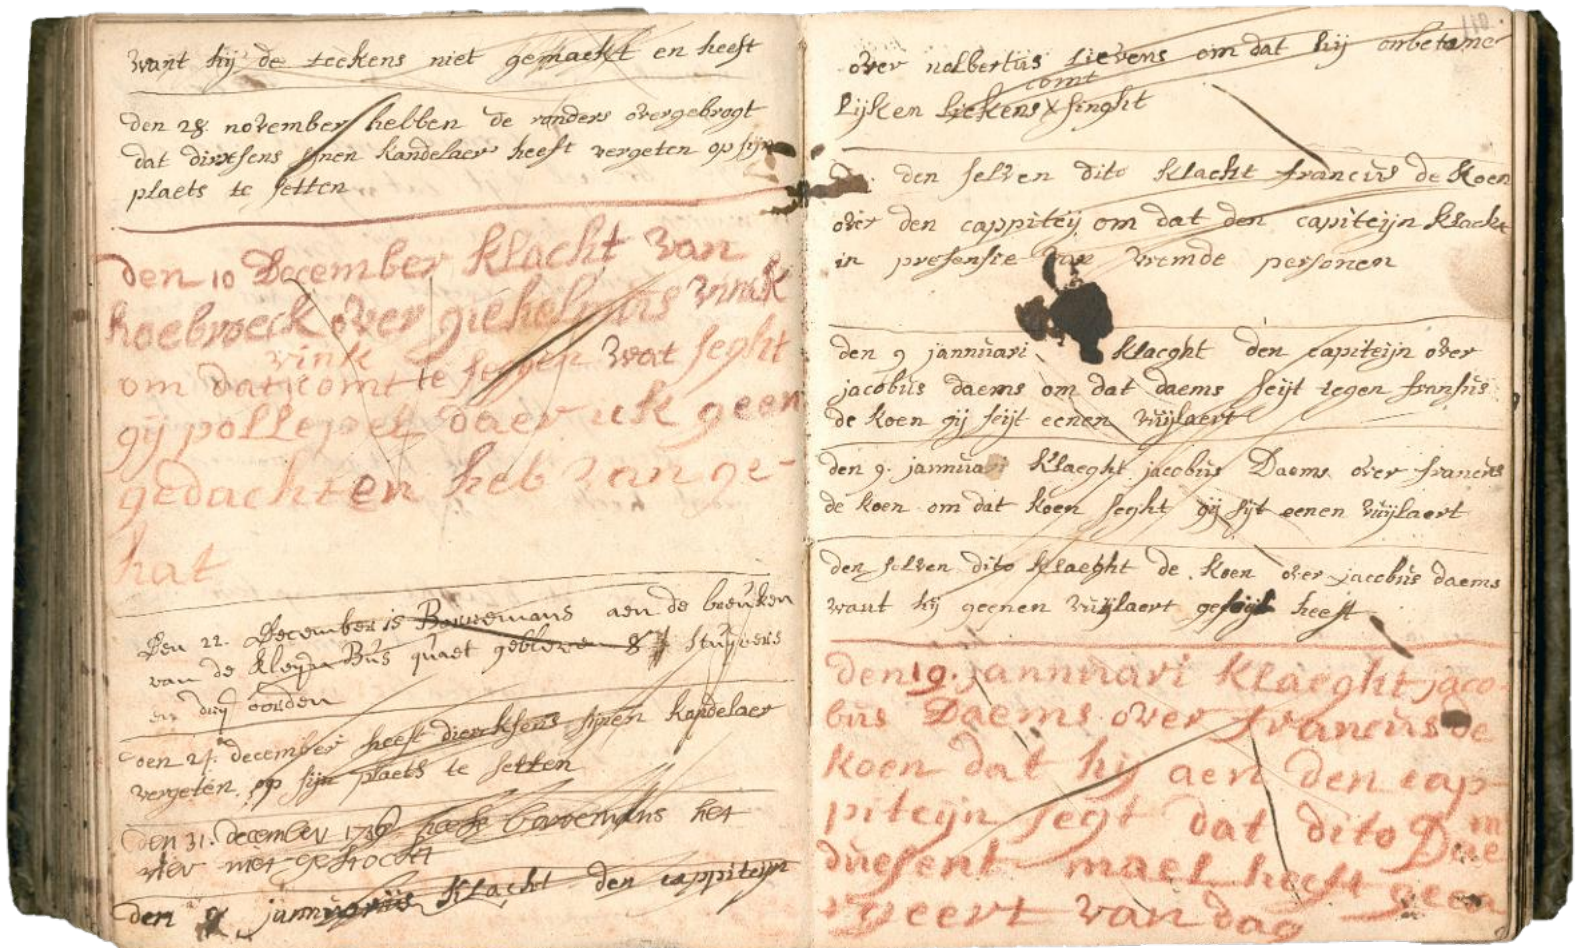 want hij de teekens niet gemackt en heeft
den 28 november hebben de randers overgebrogt
dat dirxsens sijnen kandelaer heeft vergeten op sijn
plaets te setten
den 10 December klacht van
hoebroeck over giehelmus vinck
vink
om dat komt te seggen wat seght
gij pollepel daer ick geen
gedachten heb van ge-
hat
Den 22. December is Borremans aen de breuken
van de kleyn Bus quaet gebleven 8 stuyvers
en dry oorden
den 24. december heeft diercksens sijnen kandelaer
vergeten op sijn plaets te setten
den 31. december heeft borremans het
vier niet gestockt
den jannuarius klacht den cappiteijn
over nolbertus Lievens om dat hij onbetame
comt
Lijken Liekens x singht
den selven dito klacht francus de Koen
over den cappiteij om dat den capiteijn klackt
in presensie van vremde personen
den 9 jannuari klaeght den capiteijn over
jacobus daems om dat daems seijt tegen fransus
de koen gij seijt eenen vuijlaert
den 9. jannuari klaeght jacobus Daems over francus
de koen om dat koen seght gij sijt eenen vuijlaert
den selven dito klaeght de koen over jacobus daems
want hij geenen vuijlaert geseijt heeft
den 19. jannuari klaeght jaco-
bus Daems over francus de
koen dat hij aen den cap
piteijn segt dat dito D
in
duesent mael heeft geen
geert van dag